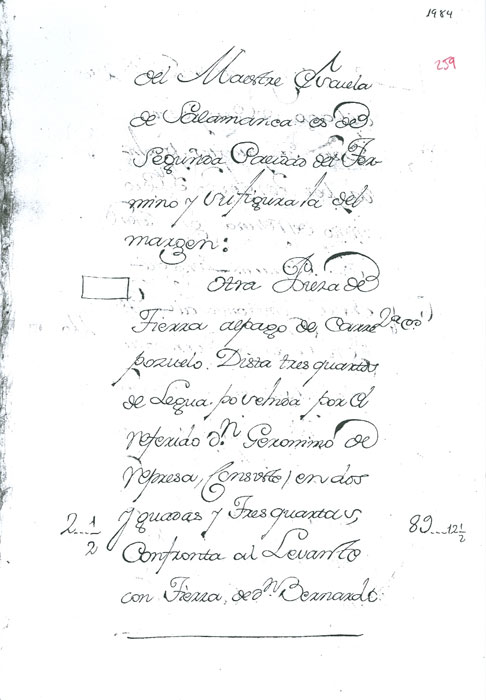 1984
259
del Maestre Escuela
de Salamanca es de
Segunda Calidad del Ter-
mino y su figura la del
margen:
Otra Pieza de
Tierra al pago de Carre
pozuelo. Dista tres quartos
de Legua poseida por el
referido Dn. Geronimo de
Represa, Consiste en dos
Yguadas y Tres quartas,
2 1/2
89 12 1/2
Confronta al Levante
con Tierra, de Dn. Bernardo